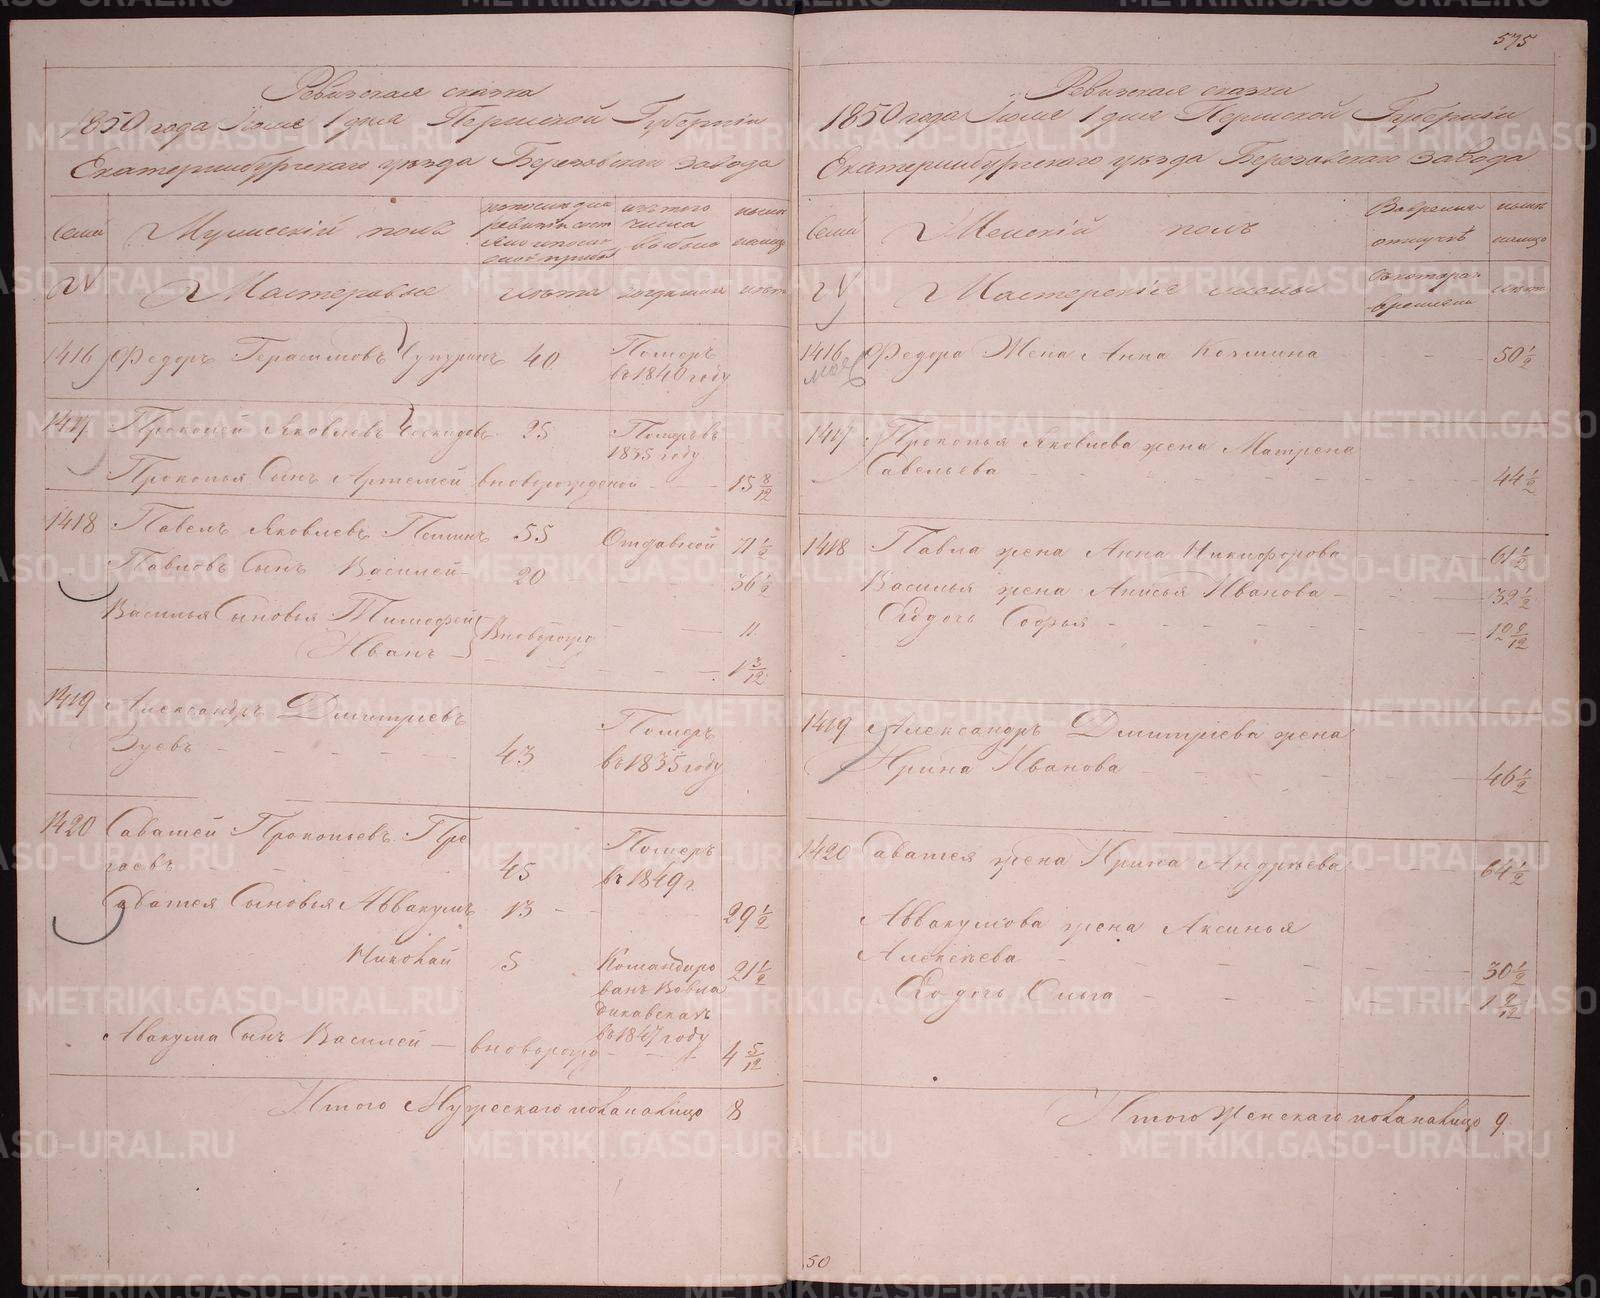 575
Ревизская сказка
1850 года Июля 1 дня Пермской Губернии
Екатеринбургского уезда Березовскаго завода
Семей
Мужеский полъ
изъ того числа выбыло
ныне налицо
№
Мастеровые
лета
когда именно
летъ
1416 Федоръ Герасимовъ Чупуринъ 40 Померъ
въ 1840 году
1417 Прокопей Яковлевъ 25 Померъ въ
1835 году
Прокопья Сынъ Артемей вноворожденой 15 8/12
1418 Павелъ Яковлевъ 55 Отставной 71 1/2
Павловъ Сынъ Василей 20 36 1/2
Василья Сыновья Тимофей вноворожд 11
Иванъ 1 3/12
1419 Александръ Дмитриевъ
Зуевъ 43 Померъ
въ 1835 году
1420 Саватей Прокопьевъ
45 Померъ
въ 1849 г
Саватея Сыновья Аввакумъ 13 29 1/2
Николай 5 Командиро
ванъ 21 1/2
въ 1847 году
Авакума Сынъ Василей вноворожд 4 5/12
Итого Мужескаго пола налицо 8
Ревизская сказка
1850 года Июля 1 дня Пермской Губернии
Екатеринбургского уезда Березовскаго завода
Семей
Женскій полъ
Во временной отлучке
ныне налицо
№
Мастерскіе жены
Съ котораго времени
летъ
1416 Федора Жена Анна Козмина 50 1/2
1417 Прокопья Яковлева жена Матрена
Савельева 44 1/2
1418 Павла жена Анна Никифорова 61 1/2
Василья жена Анисья Иванова 32 1/2
Ея дочь Софья
1419 Александръ Дмитриева жена
Ирина Иванова 46 1/2
1420 Саватея жена Ирина Андреева 64 1/2
Аввакумова жена Аксинья
Алексеева 30 1/2
Ея дочь Ольга 1 9/12
Итого женскаго пола налицо 9
50
METRIKI.GASO-URAL.RU